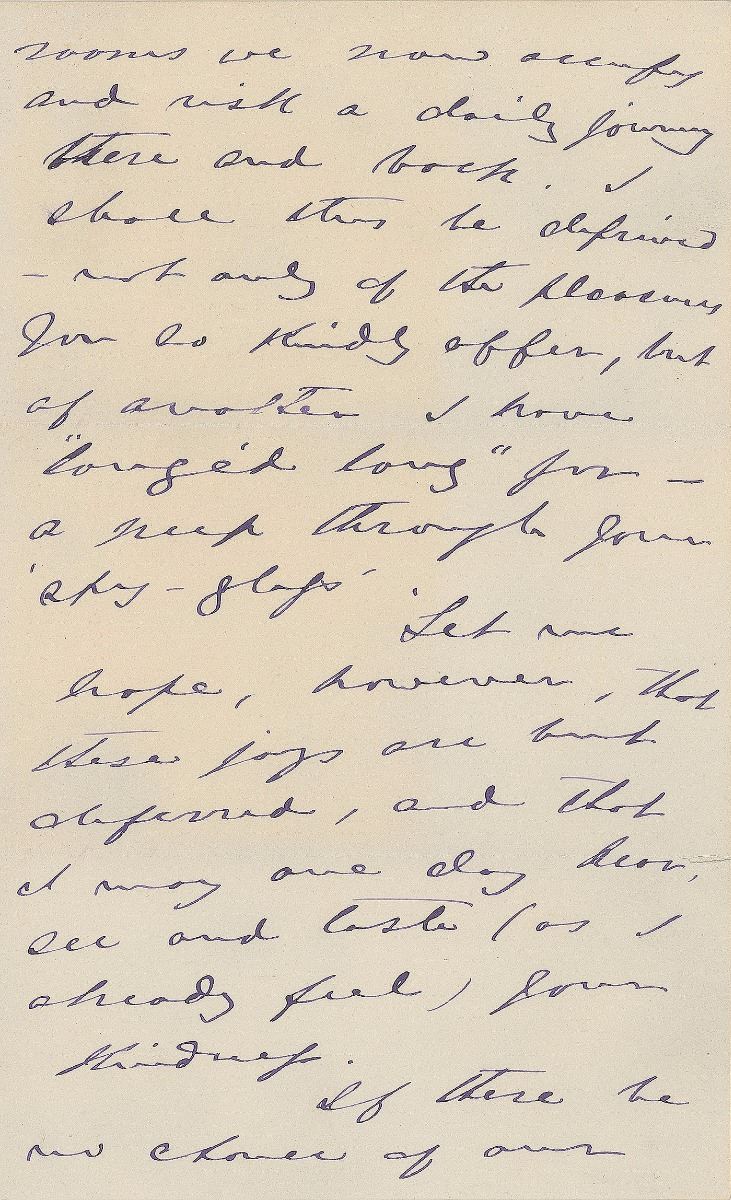 rooms we now occupy
and risk a daily journey
there and back. I
shall thus be deprived
- not only of the pleasures
you so kindly offer, but
of another I have
"longed long" for -
a peep through your
'spy-glass'
Let me
hope, however, that
these joys are but
deferred, and that
I may one day hear,
see and taste (as I
already feel) your
kindness.
If there be
no chance of our